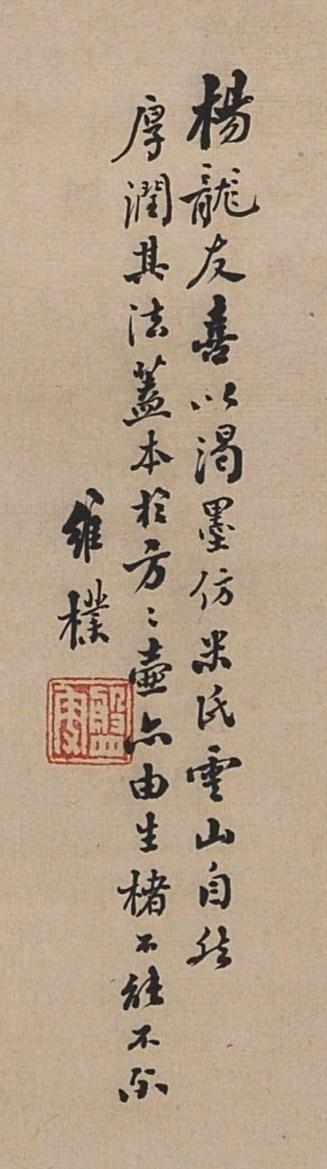 楊龍友喜以渴墨仿米氏雲山自然
厚潤其法蓋本於方〻壺亦由生楮不能不爾
維樸
盤庚